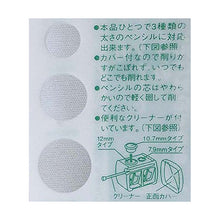 ●本品ひとつで3種類の
太さのペンシルに対応
出来ます。(下図参照)
●カバー付なので削りか
すがこぼれず、いつでも
どこでも削れます。
●ペンシルの芯はやわら
かいので軽く廻して削
てください。
●便利なクリーナーが付
いています。(下図参照)
12mm
タイプ
10.7mmタイプ
7.9mmタイプ
クリーナー
正面カバー